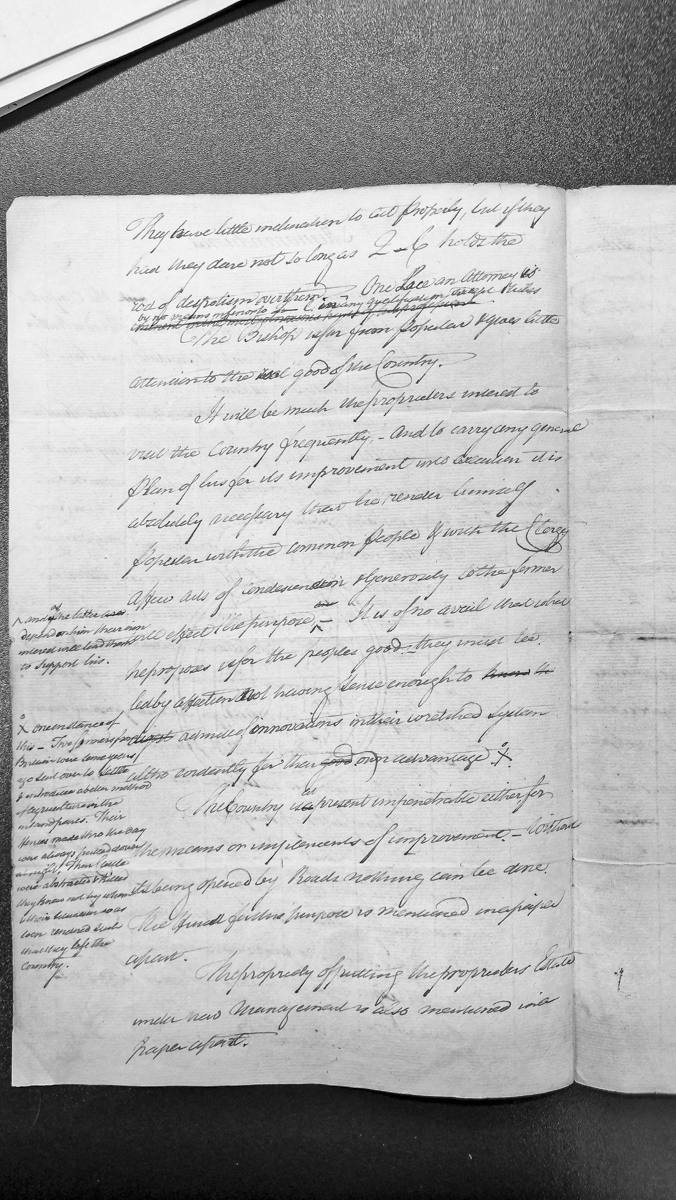 They have little inclination to act properly, but if they
had they dare not so long as Q–C holds the
rod of despotism over them. One Lace an Attorney is
by no means inferior to in any qualification except riches
The Bishop is far from popular & gives little
attention to the real good of the Country.
It will be much the proprietors interest to
visit the Country frequently – And to carry any general
plan of his for its improvement into execution it is
absolutely necessary that he render himself
popular with the common people & with the Clergy
A few acts of condescension & generosity to the former
will effect the purpose ^ – It is of no avail that what
he proposes is for the peoples good – they must be
led by affection not having sense enough to know the
admit of innovations in their wretched system
altho evidently for their good own advantage X
The Country is at present impenetrable either for
the means or implements of improvement. – Without
its being opened by Roads nothing can be done.
The Fund for this purpose is mentioned in a paper
apart.
The propriety of putting the proprietors Estate
under new Management is also mentioned in a
paper apart.
^ and as the latter
depend on him their own
interest will lead them
to support him.
X One instance of
this – Two farmers from
Britain were some years
ago sent over to settle
& introduce a better method
of agriculture in the
inland parts. Their
fences made thro the day
were always pulled down
at night. Their Cattle
were abstracted & killed
they knew not by whom
& their situation was
soon rendered such
that they left the
Country.